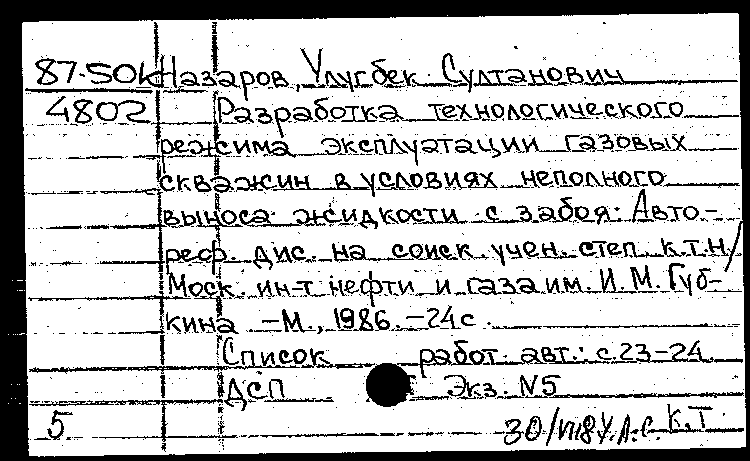 87-50к Назаров, Улугбек Султанович
4802 Разработка технологического
режима эксплуатации газовых
скважин в условиях неполного
выноса жидкости с забоя: Авто-
реф. дис. на соиск. учен. степ. к.т.н/
Моск. ин-т нефти и газа им. И.М.Губ-
кина. -М., 1986. -24с.
Список работ. авт.: с.23-24
ДСП Экз. N5
5 30/VII8 К.Т